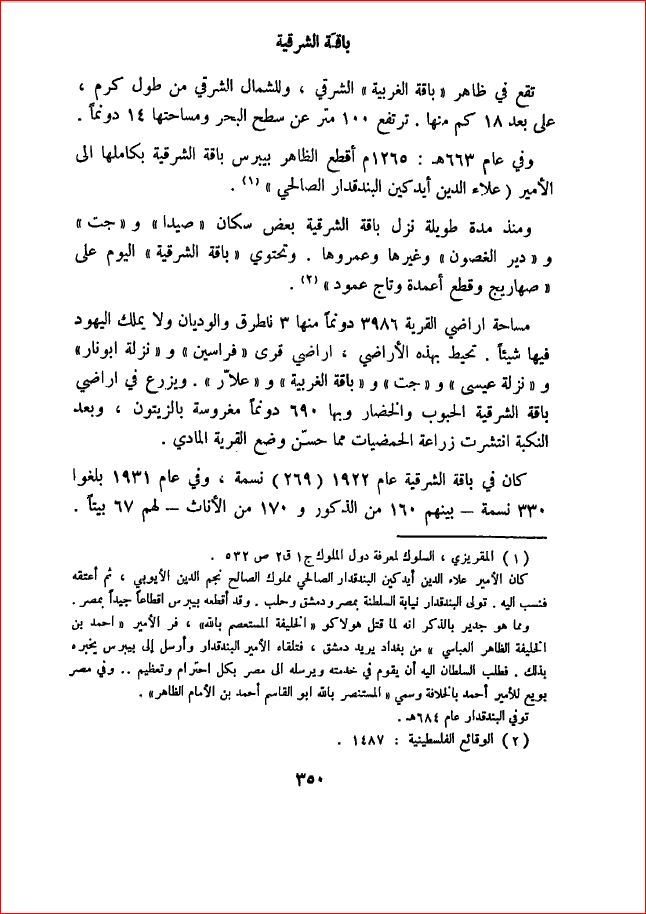 باقة الشرقية
تقع في ظاهر « باقة الغربية » الشرقي ، وللشمال الشرقي من طول كرم ،
على بعد ١٨ كم منها . ترتفع ١٠٠ متر عن سطح البحر ومساحتها ١٤ دونماً .
وفي عام ٦٦٣هـ : ١٢٦٥م أقطع الظاهر بيبرس باقة الشرقية بكاملها الى
الأمير ( علاء الدين أيدكين البندقدار الصالحي » (١) .
ومنذ مدة طويلة نزل باقة الشرقية بعض سكان « صيدا » و « جت »
و « دير الغصون » وغيرها وعمروها . وتحتوي « باقة الشرقية » اليوم على
« صهاريج وقطع أعمدة وتاج عمود » (٢) .
مساحة اراضي القرية ٣٩٨٦ دونماً منها ٣ للطرق والوديان ولا يملك اليهود
فيها شيئاً . تحيط بهذه الأراضي ، اراضي قرى « فراسين » و « نزلة ابونار»
و « نزلة عيسى » و « جت » و « باقة الغربية » و « علاّر » . ويزرع في اراضي
باقة الشرقية الحبوب والخضار وبها ٦٩٠ دونماً مغروسة بالزيتون ، وبعد
النكبة انتشرت زراعة الحمضيات مما حسّن وضع القرية المادي .
كان في باقة الشرقية عام ١٩٢٢ ( ٢٦٩ ) نسمة ، وفي عام ١٩٣١ بلغوا
٣٣٠ نسمة — بينهم ١٦٠ من الذكور و ١٧٠ من الأناث — لهم ٦٧ بيتاً .
( ١ ) المقريزي ، السلوك لمعرفة دول الملوك ج١ ق٢ ص ٥٣٢ .
كان الأمير علاء الدين أيدكين البندقدار الصالحي مملوك الصالح نجم الدين الأيوبي ، ثم أعتقه
فنسب اليه . تولى البندقدار نيابة السلطنة بمصر ودمشق وحلب . وقد أقطعه بيبرس اقطاعاً جيداً بمصر .
ومما هو جدير بالذكر انه لما قتل هولاكو « الخليفة المستعصم بالله» ، فر الأمير « احمد بن
الخليفة الظاهر العباسي » من بغداد يريد دمشق ، فتلقاه الأمير البندقدار وأرسل إلى بيبرس يخبره
بذلك . فطلب السلطان اليه أن يقوم في خدمته ويرسله الى مصر بكل احترام وتعظيم .. وفي مصر
بويع للأمير أحمد بالخلافة وسمي « المستنصر بالله ابو القاسم أحمد بن الأمام الظاهر» .
توفي البندقدار عام ٦٨٤هـ .
( ٢ ) الوقائع الفلسطينية : ١٤٨٧ .
٣٥٠